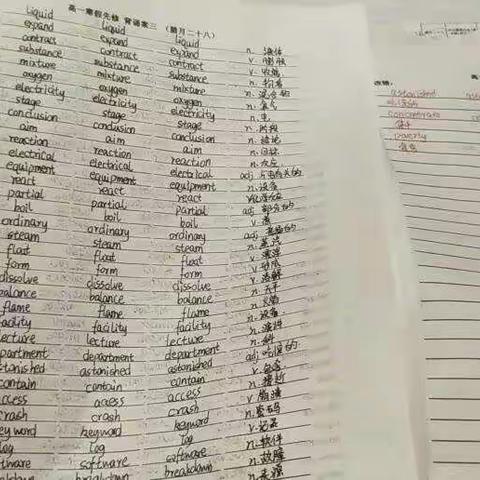 高一寒假先修 背诵案三 (腊月二十八)
liquid liquid liquid n. 液体
expand expand expand v. 膨胀
contract contract contract v. 收缩
substance substance substance n. 物质
mixture mixture mixture n. 混合物
oxygen oxygen oxygen n. 氧气
electricity electricity electricity n. 电
stage stage stage n. 阶段
conclusion conclusion conclusion n. 结论
aim aim aim n. 目标
reaction reaction reaction n. 反应
electrical electrical electrical adj 与电有关的
equipment equipment equipment n. 设备
react react react
partial partial partial adj 部分的
boil boil boil v. 沸
ordinary ordinary ordinary adj. 普通的
steam steam steam n. 蒸汽
float float float v. 漂浮
form form form v. 形成
dissolve dissolve dissolve v. 溶解
balance balance balance n. 天平
flame flame flame n. 火焰
facility facility facility n. 设备
lecture lecture lecture n. 演讲
partment department department n. 科
stonished astonished astonished adj 吃惊的
contain contain contain v. 包含
access access access n.
crash crash crash v. 崩溃
ey word keyword keyword n. 密码
log log log v. 记录
tware software software n. 软件
breakdown breakdown n. 故障
n. 来源
astonished
concentrate
poverty